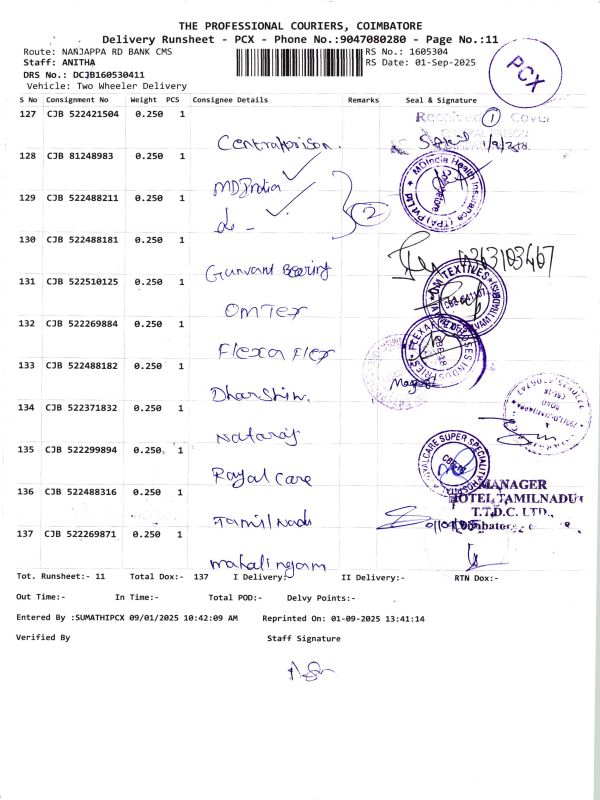 THE PROFESSIONAL COURIERS, COIMBATORE
Delivery Runsheet - PCX - Phone No.:9047080280 - Page No.:11
Route: NANJAPPA RD BANK CMS
RS No.: 1605304
Staff: ANITHA
RS Date: 01-Sep-2025
DRS No.: DCJB160530411
Vehicle: Two Wheeler Delivery
PCX
S No Consignment No Weight PCS Consignee Details Remarks Seal & Signature
127 CJB 522421504 0.250 1
Received 1 Cover
Centralprison.
128 CJB 81248983 0.250 1
MDIndia
129 CJB 522488211 0.250 1
MDIndia Health Insurance (TPA) Pvt Ltd
do - 2
130 CJB 522488181 0.250 1
Gunvant Bearing
131 CJB 522510125 0.250 1
OM TEXTIVES
OMTex
132 CJB 522269884 0.250 1
Flexa Flex
133 CJB 522488182 0.250 1
Dharshini.
134 CJB 522371832 0.250 1
Nataraj
135 CJB 522299894 0.250 1
ROYALCARE SUPER SPECIALITY HOSPITAL
Royal Care
136 CJB 522488316 0.250 1
MANAGER
HOTEL TAMILNADU
T.T.D.C. LTD.,
Coimbatore
Tamil Nadu
137 CJB 522269871 0.250 1
mahalingam
Tot. Runsheet:- 11 Total Dox:- 137 I Delivery:- II Delivery:- RTN Dox:-
Out Time:- In Time:- Total POD:- Delvy Points:-
Entered By :SUMATHIPCX 09/01/2025 10:42:09 AM Reprinted On: 01-09-2025 13:41:14
Verified By Staff Signature